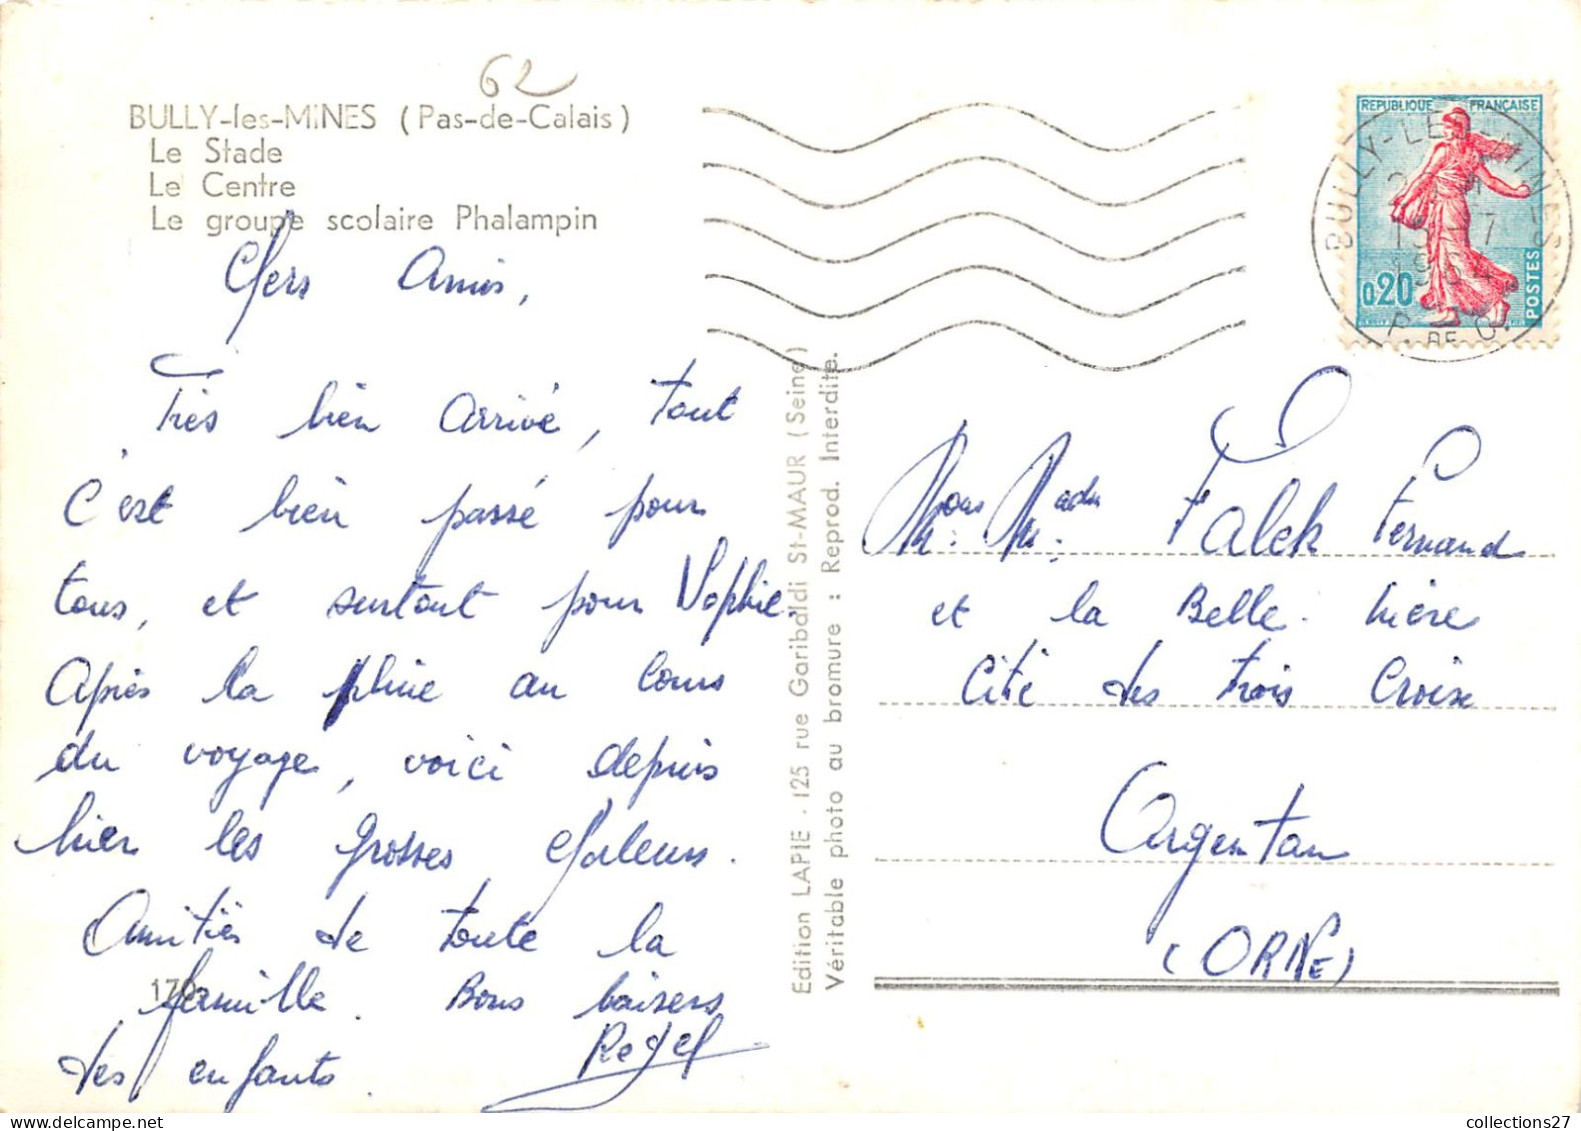 62
BULLY-les-MINES (Pas-de-Calais)
Le Stade
Le Centre
Le groupe scolaire Phalampin
Chers Amis,
Très bien arrivé, tout
c'est bien passé pour
tous, et surtout pour Sophie.
Après la pluie au cours
du voyage, voici depuis
hier les grosses chaleurs.
Amitiés de toute la
famille. Bons baisers
des enfants.
170
Edition LAPIE - 125 rue Garibaldi St-MAUR (Seine)
Véritable photo au bromure : Reprod. Interdite.
REPUBLIQUE FRANÇAISE
0,20
POSTES
BULLY-LES-MINES
1964
P. DE C.
Falek Fernand
et la Belle-Mère
Cité des trois Croix
Argentan
(ORNE)
collections27